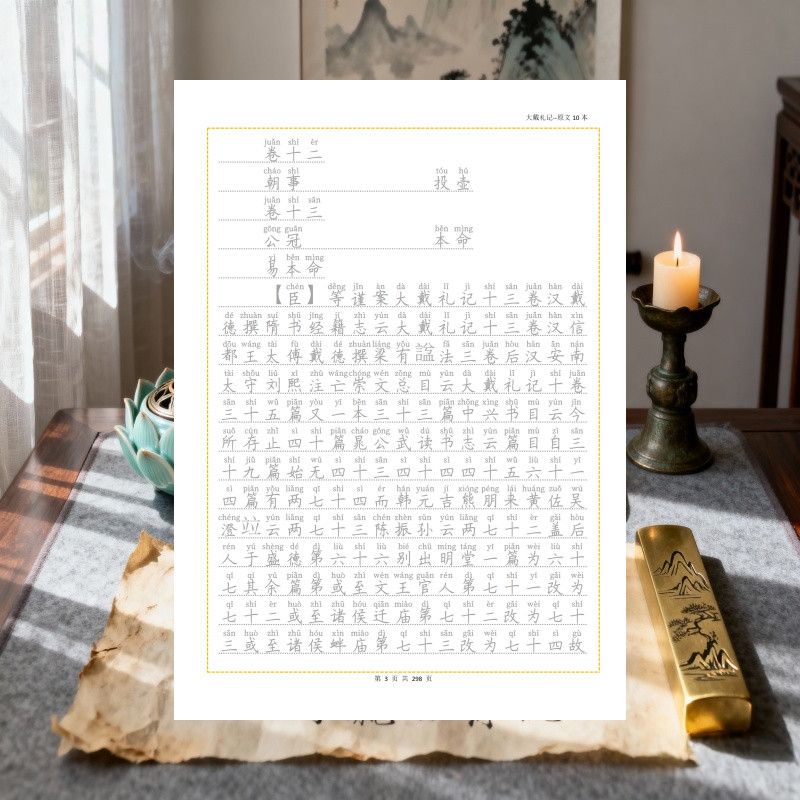 大戴礼记--原文 10 本
juǎn shí èr
卷十二
cháo shì tóu hú
朝事 投壶
juǎn shí sān
卷十三
gōng guān běn mìng
公冠 本命
yì běn mìng
易本命
chén děng jǐn àn dà dài lǐ jì shí sān juǎn hàn dài
【臣】等谨案大戴礼记十三卷汉戴
dé zhuàn suí shū jīng jí zhì yún dà dài lǐ jì shí sān juǎn hàn xìn
德撰隋书经籍志云大戴礼记十三卷汉信
dōu wáng tài fù dài dé zhuàn liáng yǒu fǎ sān juǎn hòu hàn ān nán
都王太傅戴德撰梁有諡法三卷后汉安南
tài shǒu liú xī zhù wáng chóng wén zǒng mù yún dà dài lǐ jì shí juǎn
太守刘熙注亡崇文总目云大戴礼记十卷
sān shí wǔ piān yòu yī běn sān shí sān piān zhōng xīng shū mù yún jīn
三十五篇又一本三十三篇中兴书目云今
suǒ cún zhǐ sì shí piān cháo gōng wǔ dú shū zhì yún piān mù zì sān
所存止四十篇晁公武读书志云篇目自三
shí jiǔ piān shǐ wú sì shí sān sì shí sì sì shí wǔ liù shí yī
十九篇始无四十三四十四四十五六十一
sì piān yǒu liǎng qī shí sì ér hán yuán jí xióng péng lái huáng zuǒ wú
四篇有两七十四而韩元吉熊朋来黄佐吴
chéng yún liǎng qī shí sān chén zhèn sūn yún liǎng qī shí èr gài hòu
澄竝云两七十三陈振孙云两七十二盖后
rén yú shèng dé dì liù shí liù bié chū míng táng yī piān wèi liù shí
人于盛德第六十六别出明堂一篇为六十
qī qí yú piān dì huò zhì wén wáng guān rén dì qī shí yī gǎi wèi
七其余篇第或至文王官人第七十一改为
qī shí èr huò zhì zhū hóu qiān miào dì qī shí èr gǎi wèi qī shí
七十二或至诸侯迁庙第七十二改为七十
sān huò zhì zhū hóu xìn miào dì qī shí sān gǎi wèi qī shí sì gù
三或至诸侯衅庙第七十三改为七十四故
第 3 页 共 298 页